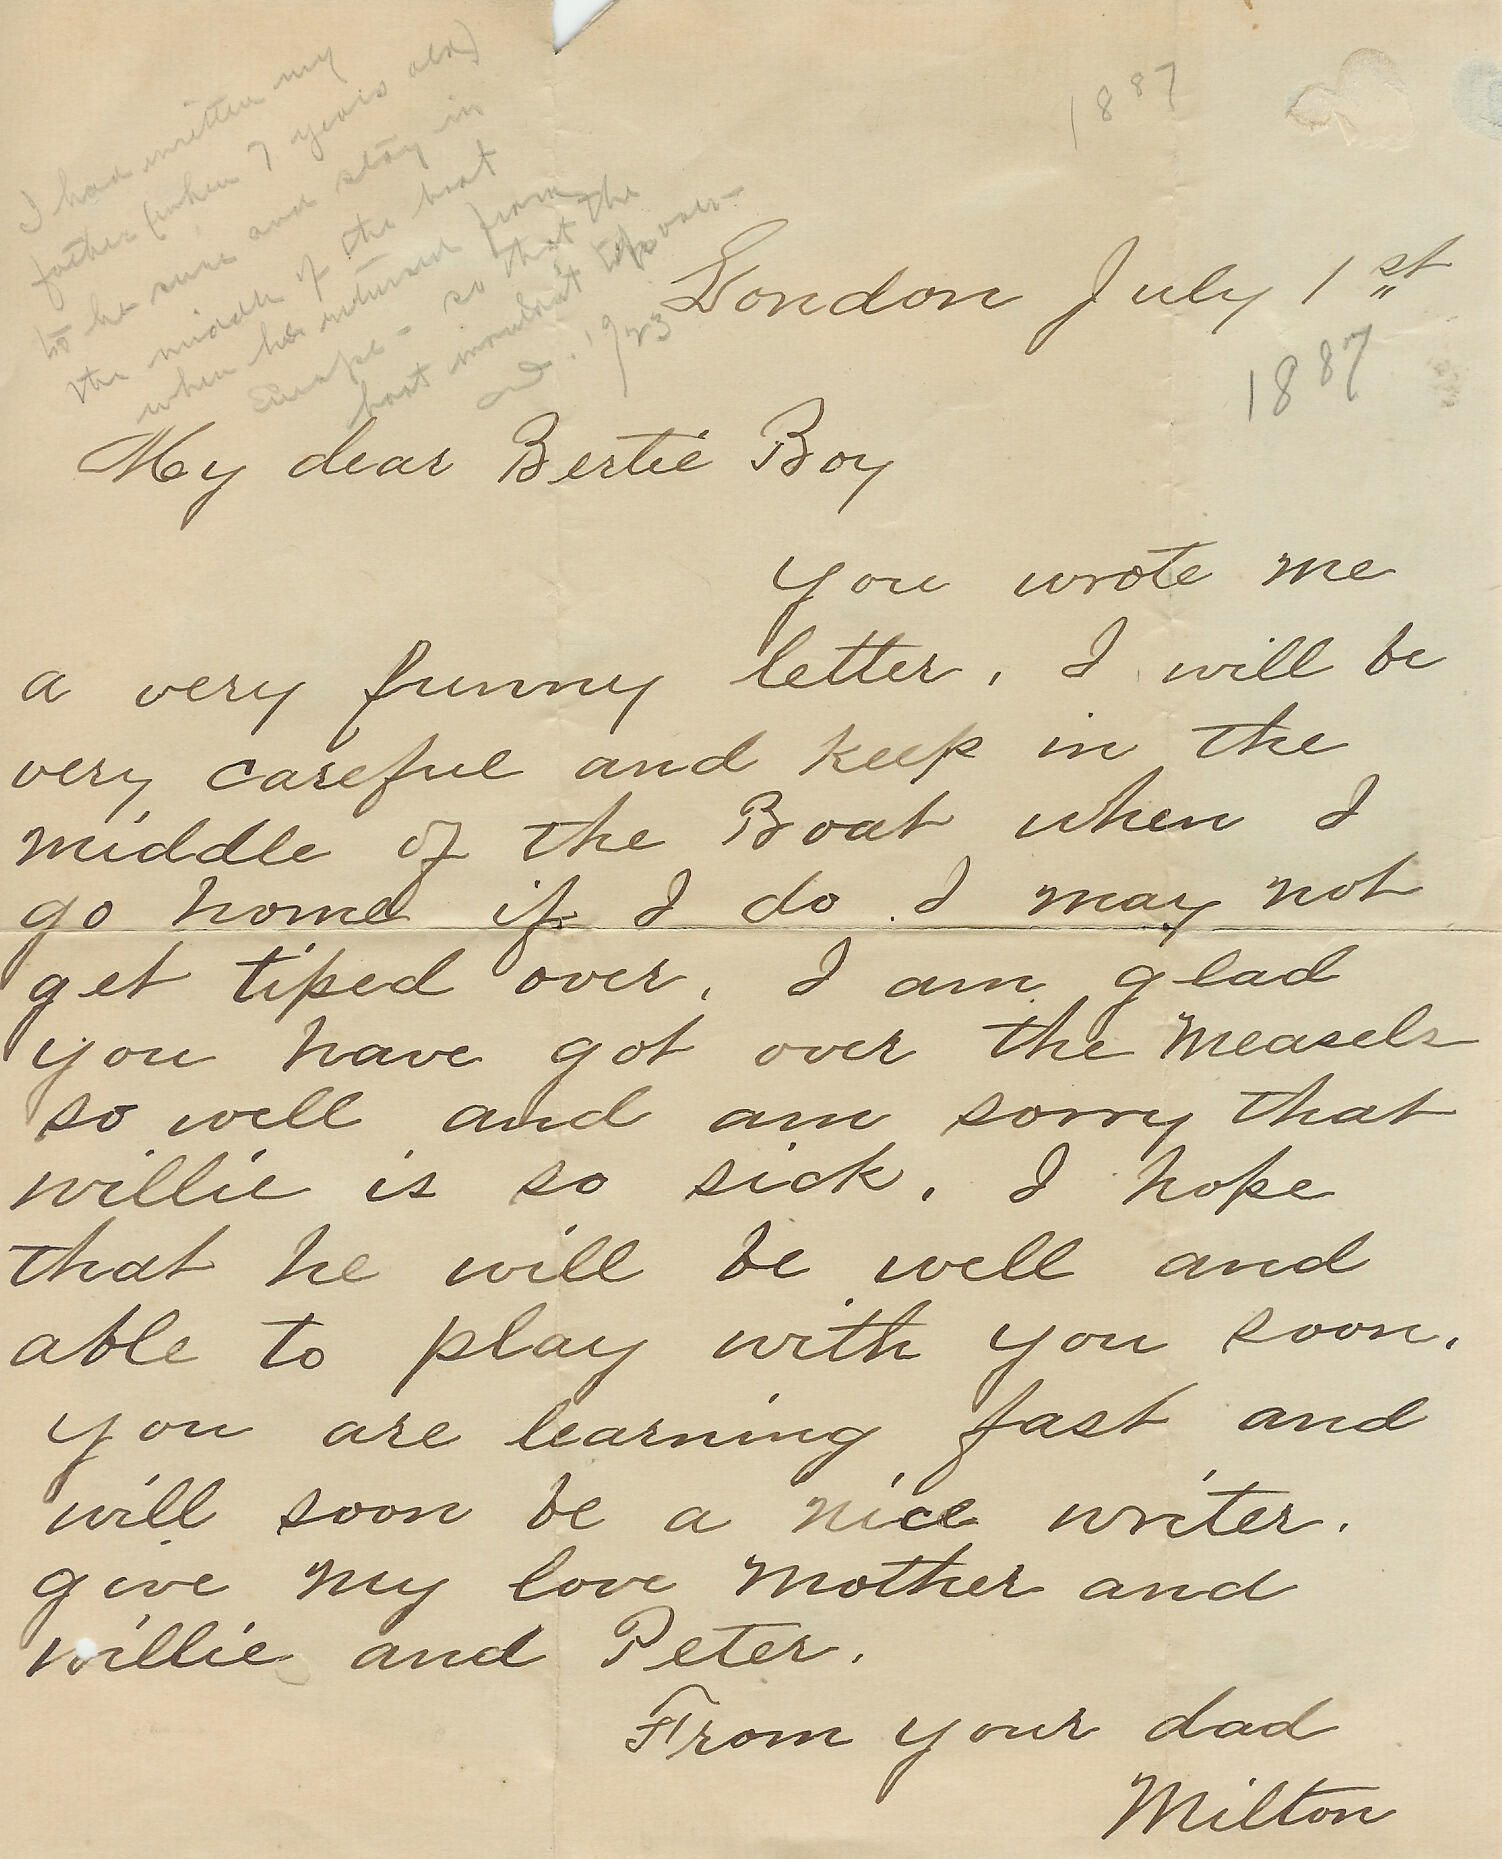 I had written my
father (when 7 years old)
to be sure and stay in
the middle of the boat
when he returned from
Europe - so that the
boat wouldn't tip over -
1923
1887
London July 1st
1887
My dear Bertie Boy
you wrote me
a very funny letter. I will be
very careful and keep in the
middle of the Boat when I
go home if I do I may not
get tiped over. I am glad
you have got over the measels
so well and am sorry that
willie is so sick. I hope
that he will be well and
able to play with you soon.
you are learning fast and
will soon be a nice writer.
give my love mother and
willie and Peter.
From your dad
Milton